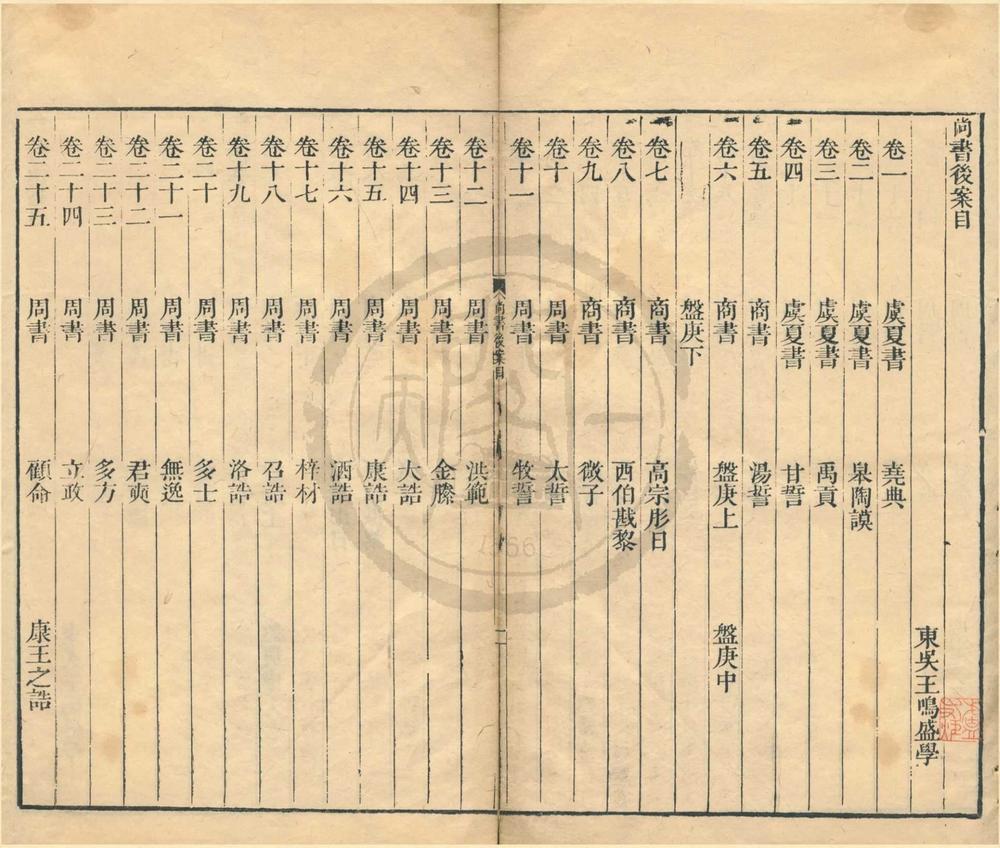 尚書後案目
東吳王鳴盛學
卷一 虞夏書 堯典
卷二 虞夏書 皋陶謨
卷三 虞夏書 禹貢
卷四 虞夏書 甘誓
卷五 商書 湯誓
卷六 商書 盤庚上 盤庚中
盤庚下
卷七 商書 高宗肜日
卷八 商書 西伯戡黎
卷九 商書 微子
卷十 周書 太誓
卷十一 周書 牧誓
尚書後案目
卷十二 周書 洪範
卷十三 周書 金縢
卷十四 周書 大誥
卷十五 周書 康誥
卷十六 周書 酒誥
卷十七 周書 梓材
卷十八 周書 召誥
卷十九 周書 洛誥
卷二十 周書 多士
卷二十一 周書 無逸
卷二十二 周書 君奭
卷二十三 周書 多方
卷二十四 周書 立政
卷二十五 周書 顧命 康王之誥